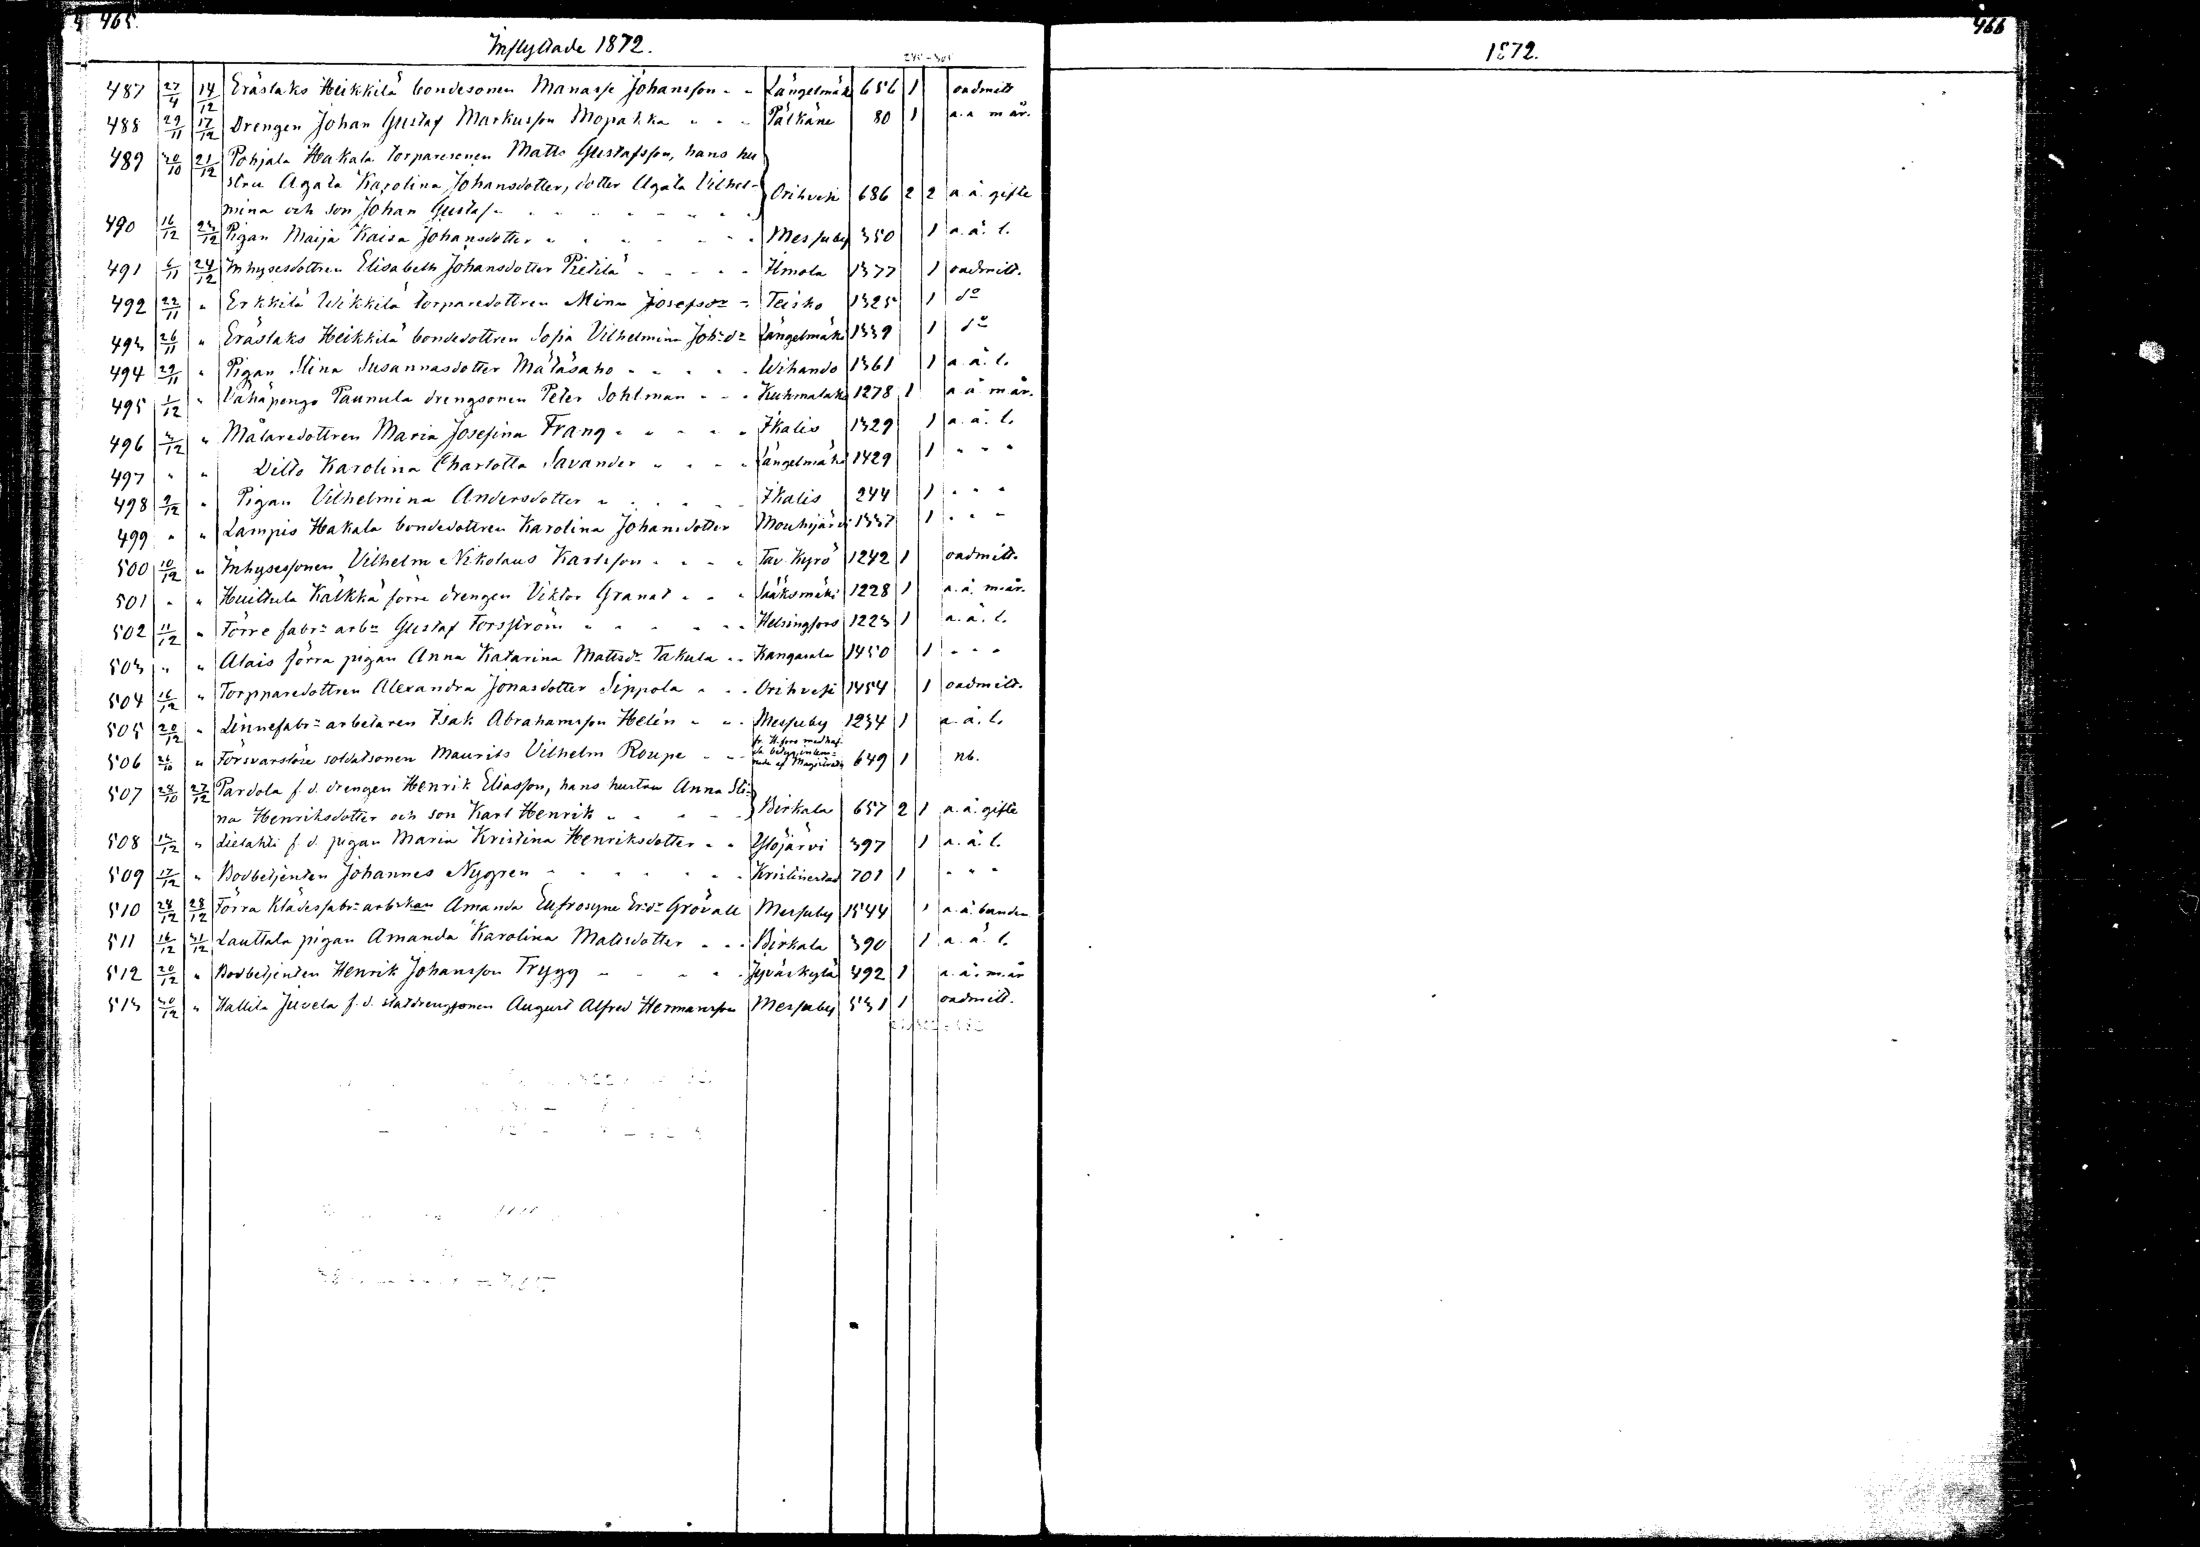 465.
Inflyttade 1872.
487 27/4 14/12 Eräslaks Heikkilä bondesonen Manasse Johansson - - Längelmäki 656 1 oadmitt
488 29/11 17/12 Drengen Johan Gustaf Markusson Mopahka - - - Pälkäne 80 1 a.a m år.
489 20/10 21/12 Pohjala Hakala torparesonen Matts Gustafsson, hans hu
stru Agata Karolina Johansdotter, dotter Agata Vilhel- Orihvesi 686 2 2 a.ä. gifte
mina och son Johan Gustaf - - - - - - -
490 16/12 23/12 Pigan Maija Kaisa Johansdotter - - - - - - Messuby 350 1 a.ä. l.
491 6/11 24/12 Inhysesdottren Elisabeth Johansdotter Pietilä - - - - - Ilmola 1377 1 oadmitt.
492 22/11 " Erkkilä Wikkilä torparedottren Mina Josefsdr - Teisko 1325 1 do
493 26/11 " Eräslaks Heikkilä bondedottren Sofia Vilhelmina Joh:dr Längelmäki 1339 1 do
494 29/11 " Pigan Stina Susannasdotter Mätäsaho - - - - - Wihando 1361 1 a.ä. l.
495 1/12 " Vähäpongo Paunula drengsonen Peter Sohlman - - - Kuhmalaks 1278 1 a ä m år.
496 3/12 " Målaredottren Maria Josefina Frang - - - - - Ikalis 1329 1 a.ä. l.
497 " " Ditto Karolina Charlotta Savander - - - - Längelmäki 1429 1 " " "
498 9/12 " Pigan Vilhelmina Andersdotter - - - - - Ikalis 244 1 " " "
499 " " Lampis Hakala bondedottren Karolina Johansdotter Mouhijärvi 1337 1 " " "
500 10/12 " Inhysessonen Vilhelm Nikolaus Karlsson - - - - Tav. Kyrö 1242 1 oadmitt.
501 " " Huittula Kälkkä förre drengen Viktor Granat - - - Sääksmäki 1228 1 a.ä. m.år.
502 11/12 " Förre fabr: arb: Gustaf Forsström - - - - - - Helsingfors 1223 1 a.ä. l.
503 " " Alais förra pigan Anna Katarina Mattsdr Takula - - Kangasala 1450 1 " " "
504 16/12 " Torpparedottren Alexandra Jonasdotter Sippola - - - Orihvesi 1454 1 oadmitt.
505 20/12 " Linnefabr: arbetaren Isak Abrahamsson Helén - - - Messuby 1234 1 a.ä. l.
506 26/10 " Försvarslöse soldatsonen Maurits Vilhelm Roupe - - - fr. H.fors medhaf- 649 1 nb.
507 28/10 27/12 Pardola f.d. drengen Henrik Eliasson, hans hustru Anna Sti-
na Henriksdotter och son Karl Henrik - - - - - Birkala 657 2 1 a.ä. gifte
508 13/12 " Lielahti f.d. pigan Maria Kristina Henriksdotter - - Ylöjärvi 397 1 a.ä. l.
509 17/12 " Bodbetjenten Johannes Nygren - - - - - - - Kristinestad 701 1 " " "
510 28/12 28/12 Förra Klädesfabr: arb:skan Amanda Eufrosyne Er:dr Grövall Messuby 1544 1 a.ä. bunden
511 16/12 31/12 Lauttala pigan Amanda Karolina Mattsdotter - - - Birkala 390 1 a.ä. l.
512 20/12 " Bodbetjenten Henrik Johansson Trygg - - - - - Jyväskylä 492 1 a.ä. m.år
513 30/12 " Hallila Juvela f.d. statdrengsonen August Alfred Hermansson Messuby 531 1 oadmitt.
466
1872.